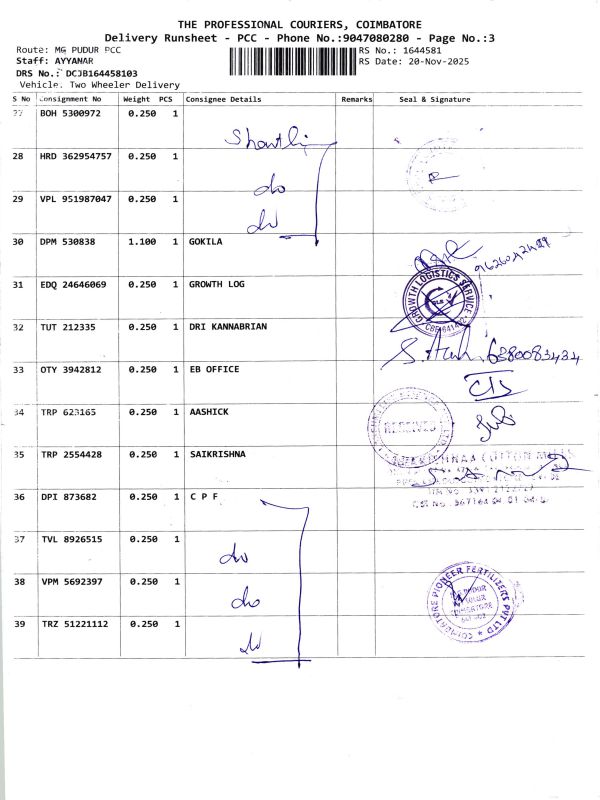 THE PROFESSIONAL COURIERS, COIMBATORE
Delivery Runsheet - PCC - Phone No.:9047080280 - Page No.:3
Route: MG PUDUR PCC
RS No.: 1644581
Staff: AYYANAR
RS Date: 20-Nov-2025
DRS No.: DCJB164458103
Vehicle. Two Wheeler Delivery
S No Consignment No Weight PCS Consignee Details Remarks Seal & Signature
27 BOH 5300972 0.250 1
28 HRD 362954757 0.250 1 do
29 VPL 951987047 0.250 1 do
30 DPM 530838 1.100 1 GOKILA
31 EDQ 24646069 0.250 1 GROWTH LOG
GROWTH LOGISTICS SERVICE
32 TUT 212335 0.250 1 DRI KANNABRIAN
6380083434
33 OTY 3942812 0.250 1 EB OFFICE
34 TRP 623165 0.250 1 AASHICK
RECEIVED
35 TRP 2554428 0.250 1 SAIKRISHNA
36 DPI 873682 0.250 1 C P F
37 TVL 8926515 0.250 1 do
38 VPM 5692397 0.250 1 do
COIMBATORE PIONEER FERTILIZERS PVT LTD
39 TRZ 51221112 0.250 1 do